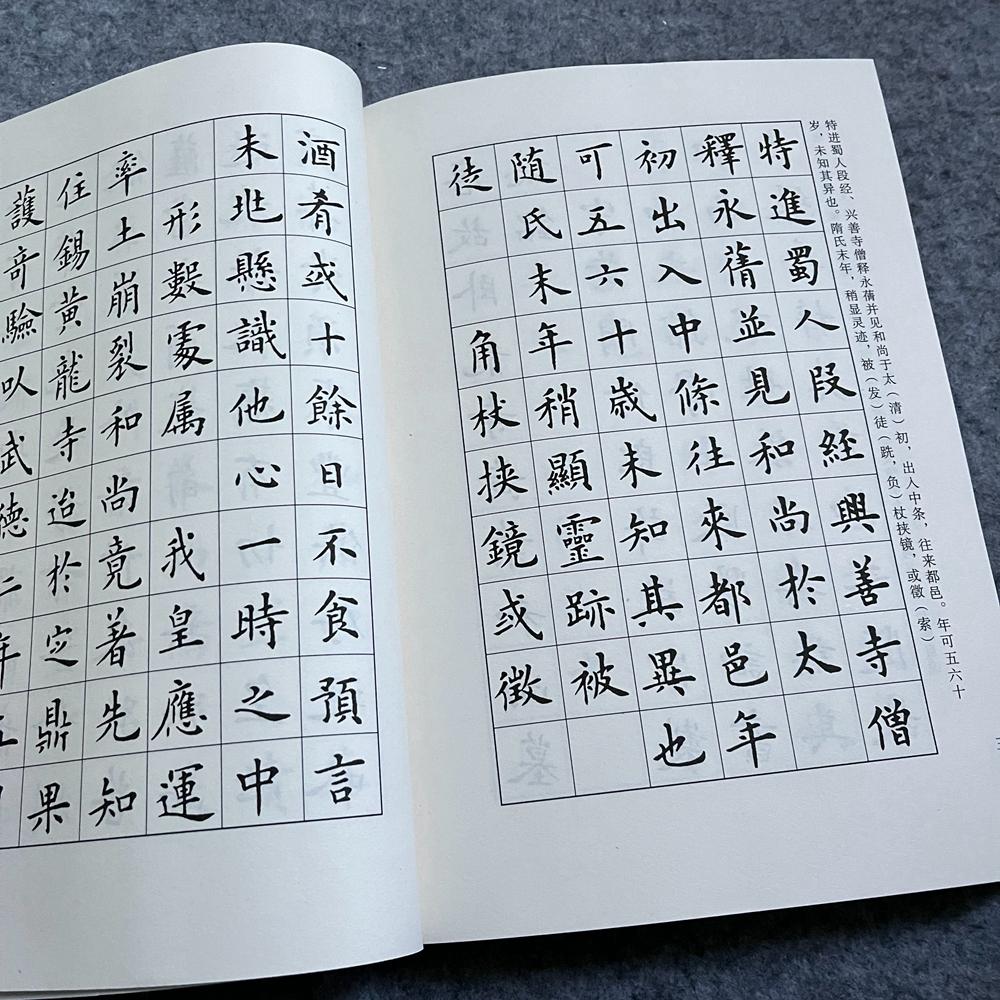 特进蜀人段经、兴善寺僧释永蒨并见和尚于太（清）初，出人中条，往来都邑。年可五六十
岁，未知其异也。隋氏末年，稍显灵迹，被（发）徒（跣，负）杖挟镜，或徵（索）
特進蜀人段經興善寺僧
釋永蒨並見和尚於太
初出入中條往來都邑年
可五六十歲未知其異也
隨氏末年稍顯靈跡被
徒角杖挾鏡或徵
酒肴或十餘日不食預言
未兆懸識他心一時之中
形數處属我皇應運
率土崩裂和尚竟著先知
住錫黃龍寺迨於定鼎果
護奇驗以武德二年五